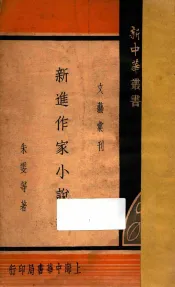 新中華叢書
文藝彙刊
新進作家小說
朱雯等著
上海中華書局印行